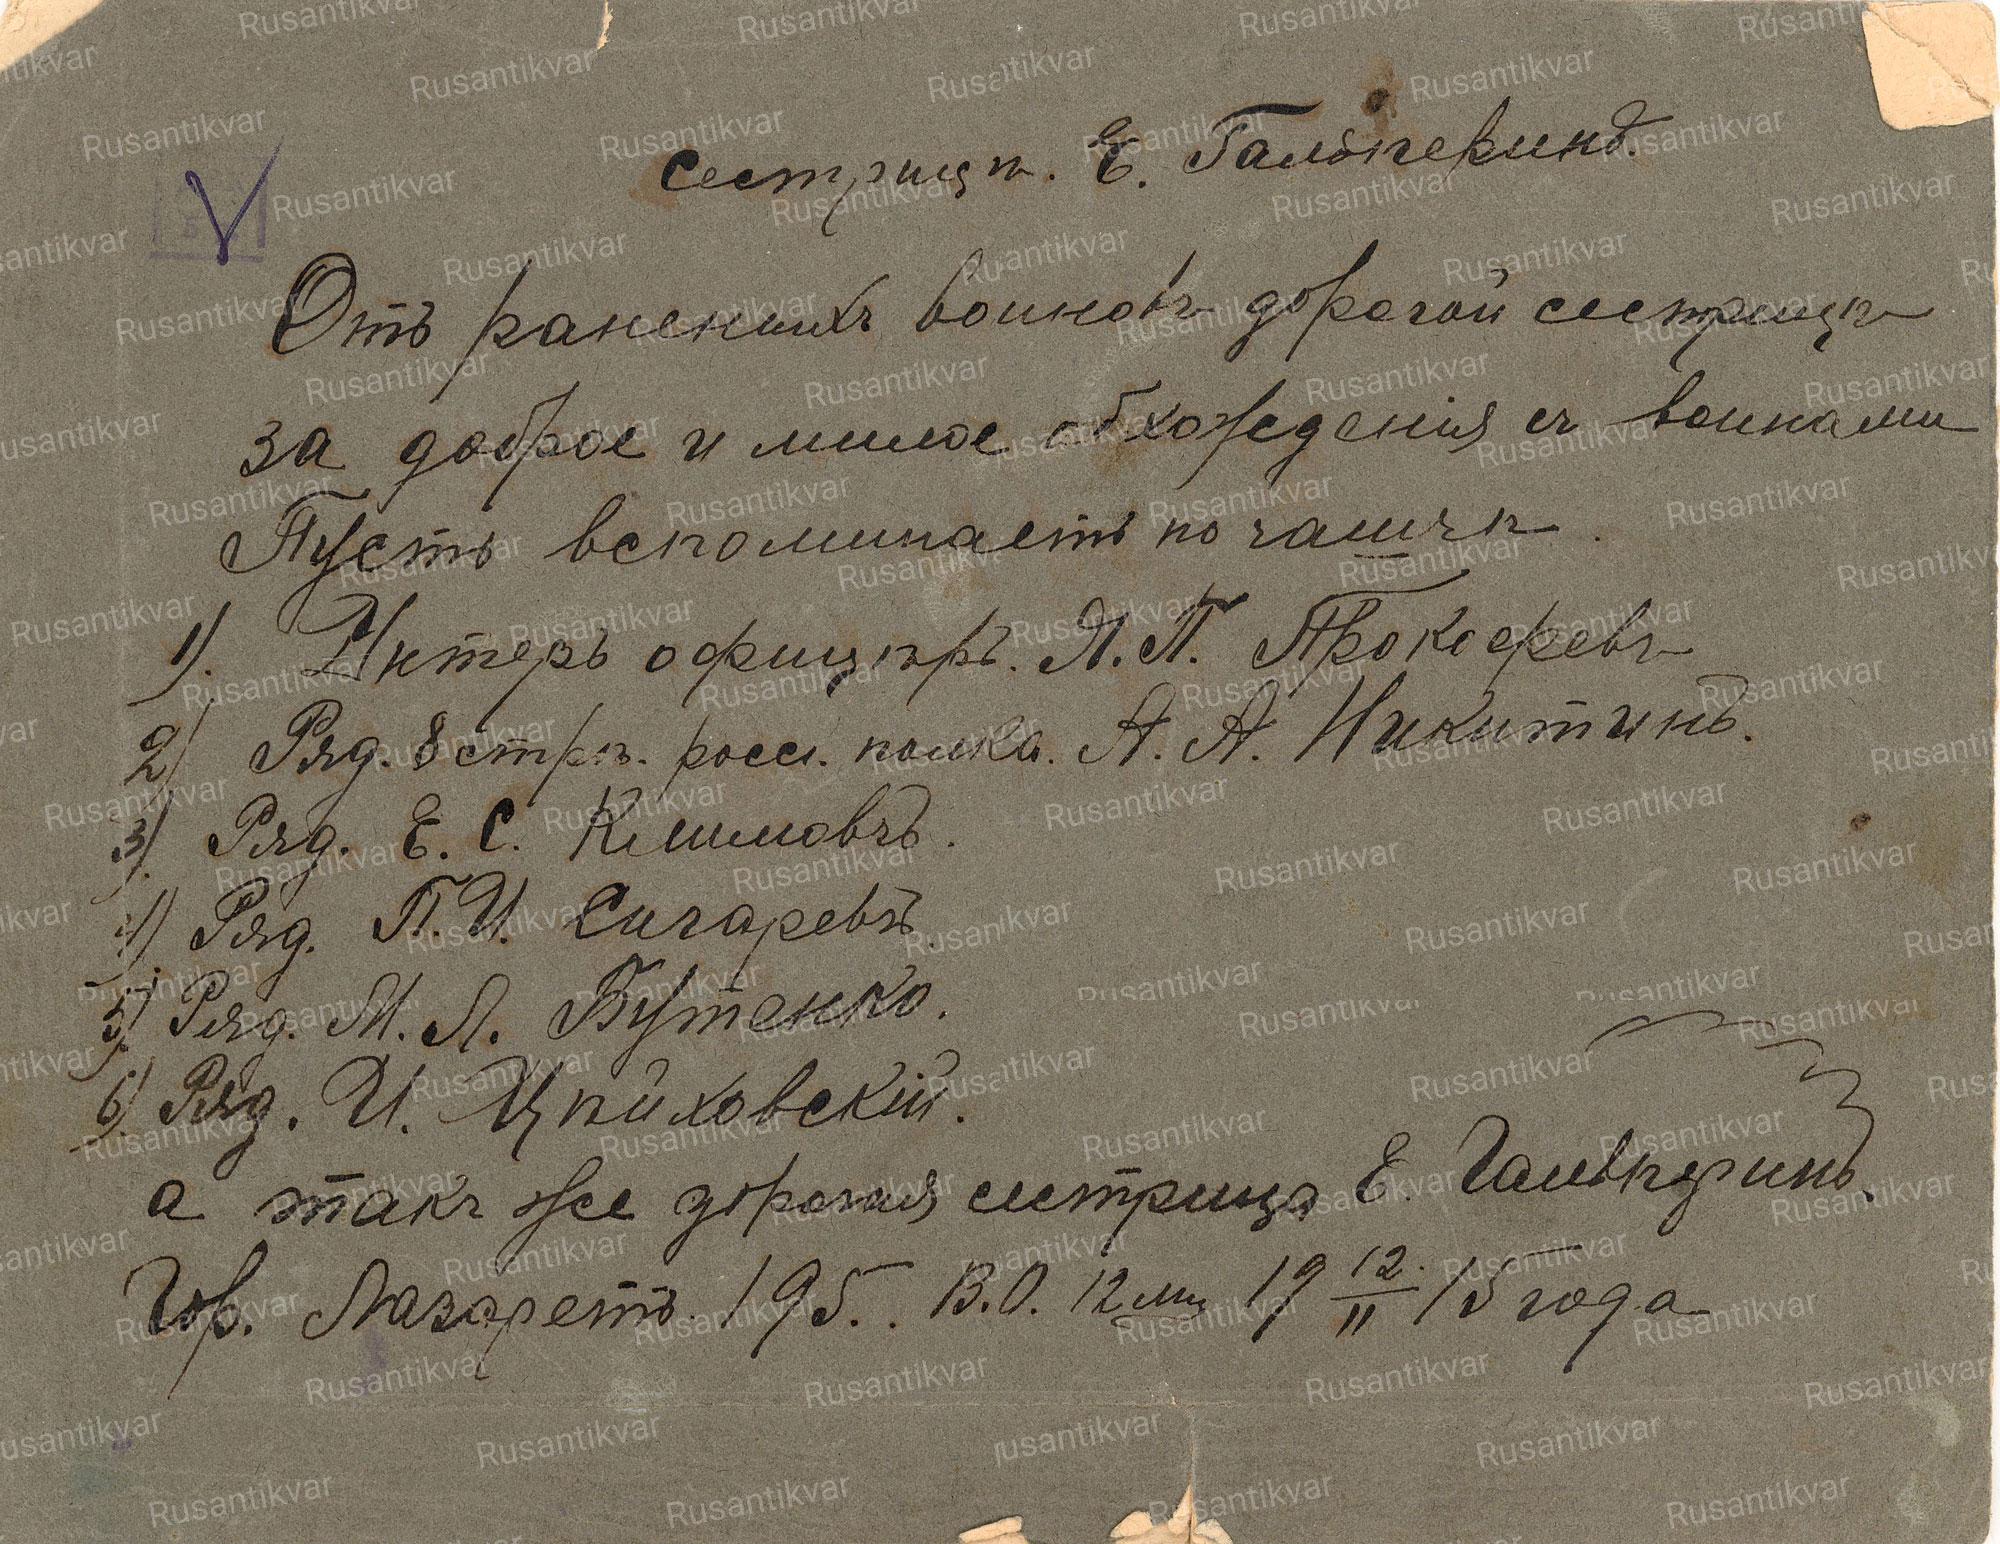 сестрицѣ. Е. Гальперинъ.
Отъ раненихъ воиновъ дорогой сестрицѣ
за доброе и милое обхожденія съ воинами
Пусть вспоминаетъ по чашчкѣ
1). Унтеръ офицѣръ. Я. П. Прокофевъ
2) Ряд. 8 стрѣ. росс. полка. А. А. Никитинъ.
3) Ряд. Е. С. Климовъ.
4) Ряд. П. И. Сигаревъ.
5) Ряд. М. Л. Бутенко.
6) Ряд. И. Цѣйховскій.
а такъ же дорогая сестрица Е. Гальперинъ.
Гор. Лазаретъ. 195. В.О. 12 19 12/11 15 года